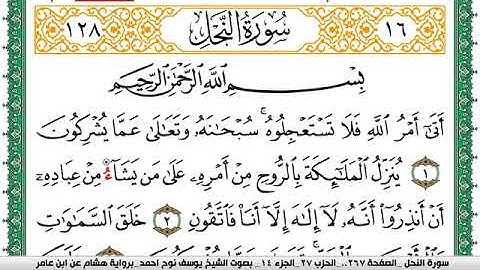 ١٢٨ سُورَةُ النَّحْلِ ١٦
بِسْمِ اللَّهِ الرَّحْمَٰنِ الرَّحِيمِ
أَتَىٰ أَمْرُ اللَّهِ فَلَا تَسْتَعْجِلُوهُ ۚ سُبْحَانَهُ وَتَعَالَىٰ عَمَّا يُشْرِكُونَ
١ يُنَزِّلُ الْمَلَائِكَةَ بِالرُّوحِ مِنْ أَمْرِهِ عَلَىٰ مَنْ يَشَاءُ مِنْ عِبَادِهِ
أَنْ أَنْذِرُوا أَنَّهُ لَا إِلَٰهَ إِلَّا أَنَا فَاتَّقُونِ ٢ خَلَقَ السَّمَاوَاتِ
سورة النحل _الصفحة ٢٦٧.._الحزب ٢٧_الجزء ١٤_ بصوت الشيخ يوسف نوح احمد_برواية هشام عن ابن عامر